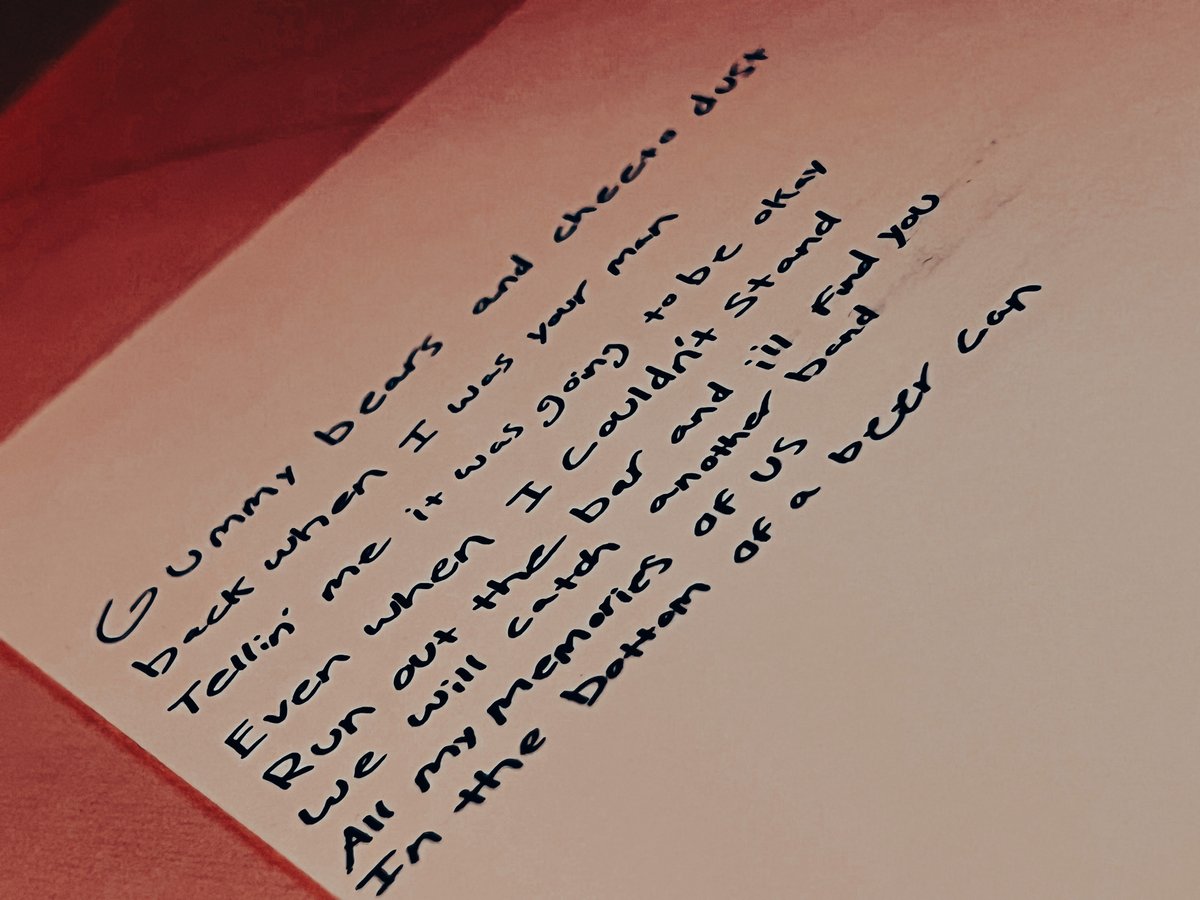 Gummy bears and cheeto dust
back when I was your man
Tellin' me it was going to be okay
Even when I couldn't stand
Run out the bar and ill find you
We will catch another band
All my memories of us
In the bottom of a beer can